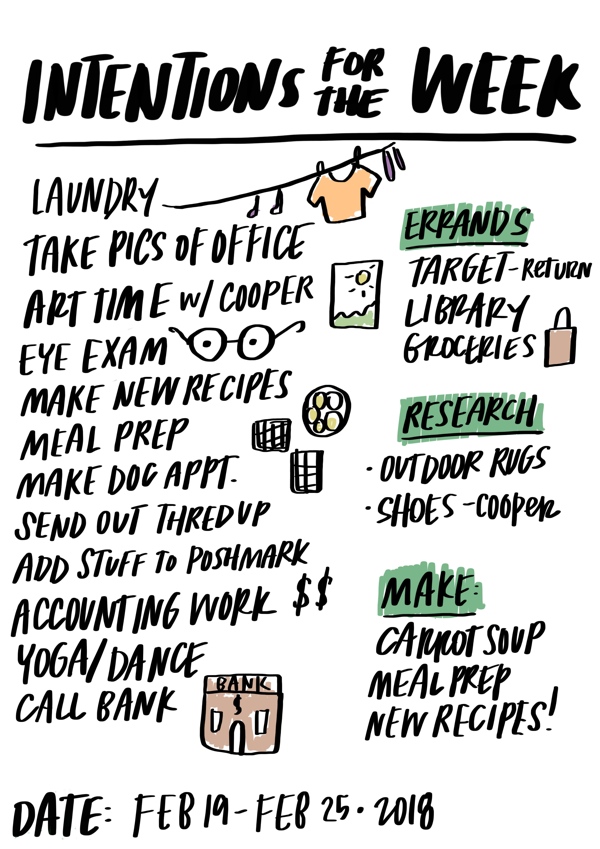 INTENTIONS FOR THE WEEK
LAUNDRY
TAKE PICS OF OFFICE
ART TIME W/ COOPER
EYE EXAM
MAKE NEW RECIPES
MEAL PREP
MAKE DOC APPT.
SEND OUT THREDUP
ADD STUFF TO POSHMARK
ACCOUNTING WORK $$
YOGA/DANCE
CALL BANK
BANK
$
ERRANDS
TARGET-RETURN
LIBRARY
GROCERIES
RESEARCH
· OUTDOOR RUGS
· SHOES-COOPER
MAKE:
CARROT SOUP
MEAL PREP
NEW RECIPES!
DATE: FEB 19-FEB 25·2018